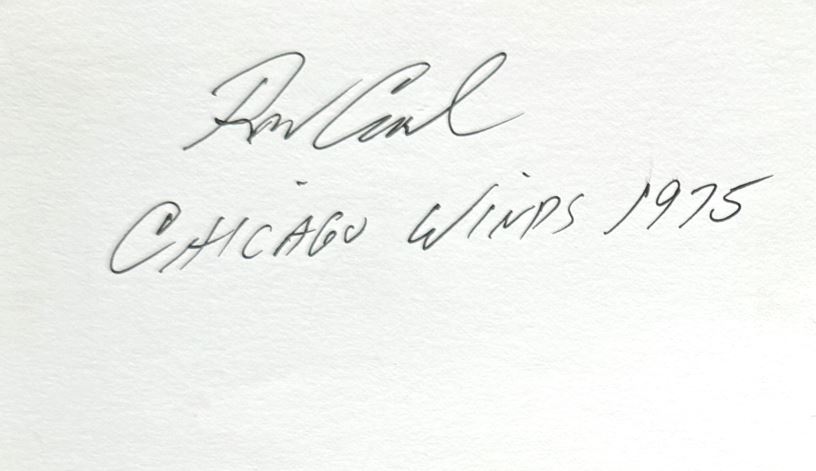 Ron
CHICAGO WINDS 1975